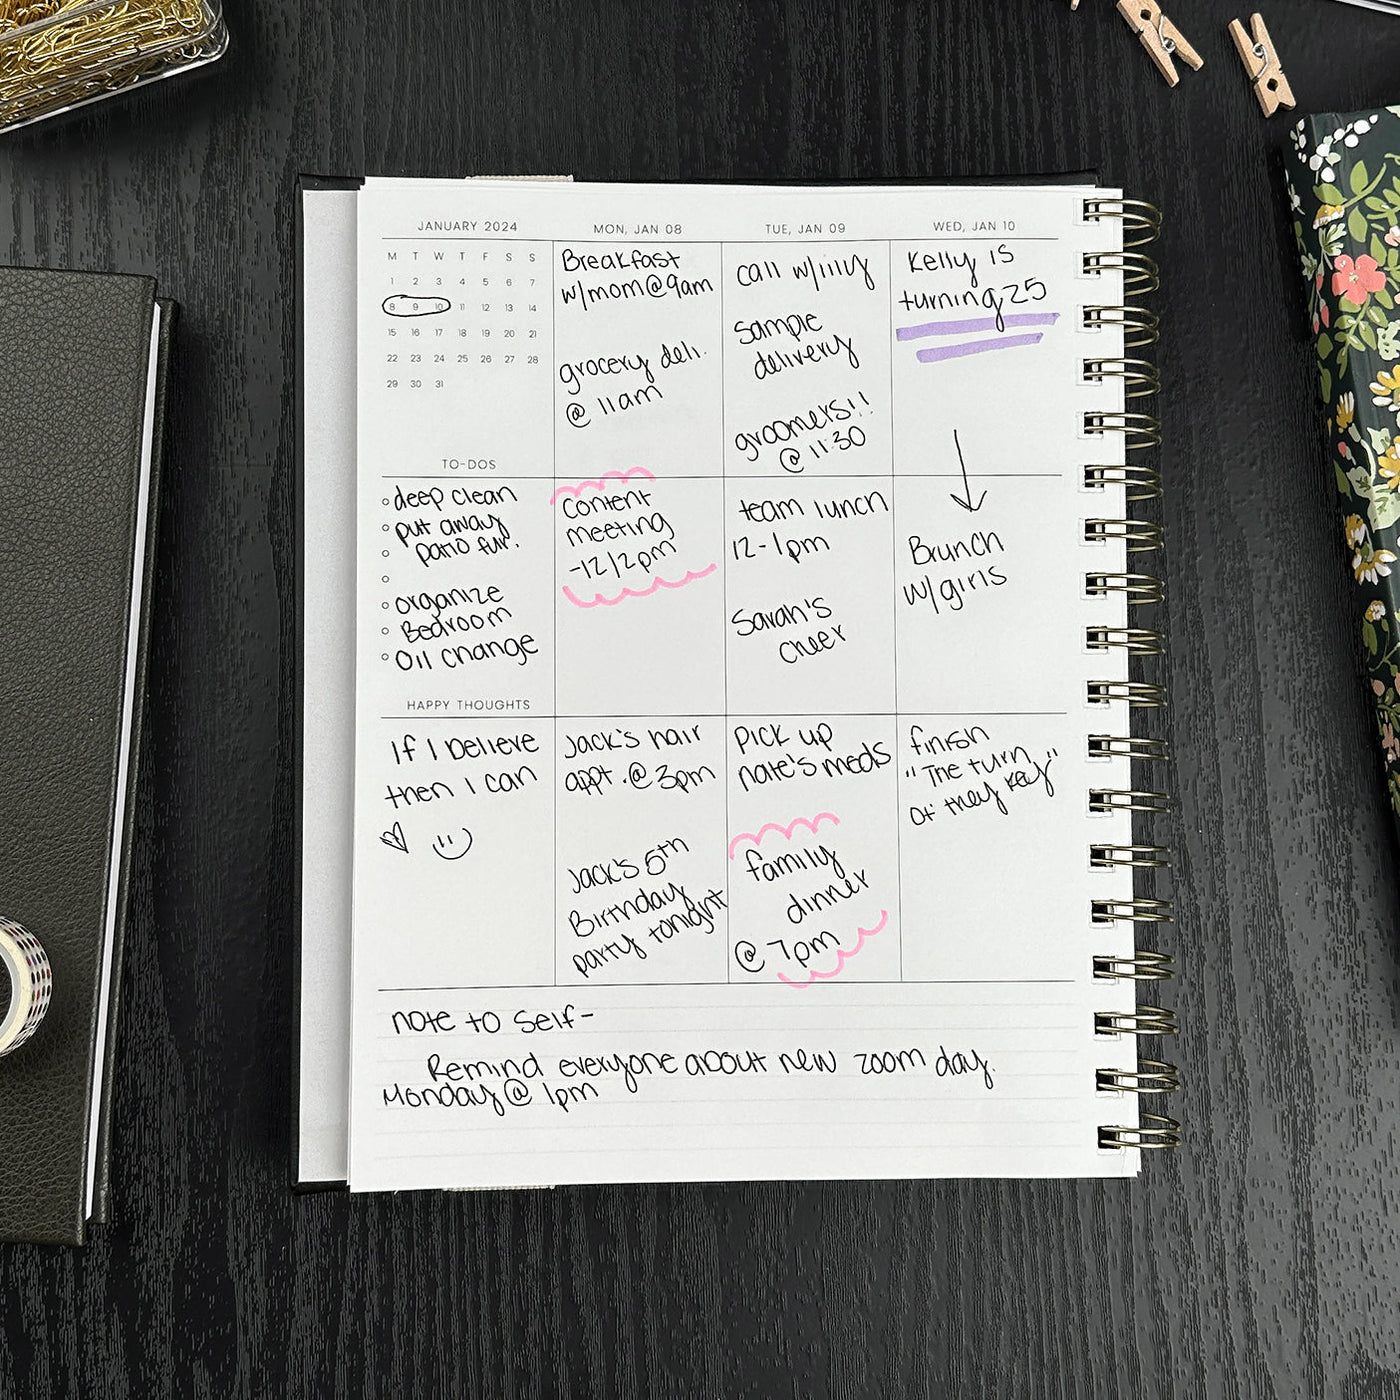 JANUARY 2024
M T W T F S S
1 2 3 4 5 6 7
8 9 10 11 12 13 14
15 16 17 18 19 20 21
22 23 24 25 26 27 28
29 30 31
TO-DOS
deep clean
put away
patio fur.
organize
Bedroom
Oil change
HAPPY THOUGHTS
If I believe
then I can
MON, JAN 08
Breakfast
w/mom@9am
grocery deli.
@ 11am
content
meeting
-12/2pm
Jack's hair
appt. @ 3pm
Jack's 5th
Birthday
party tonight
TUE, JAN 09
call w/lilly
Sample
delivery
groomers!!
@ 11:30
team lunch
12-1pm
Sarah's
cheer
Pick up
nate's meds
family
dinner
@ 7pm
WED, JAN 10
Kelly is
turning 25
Brunch
w/girls
finish
"The turn
of they Key"
note to self-
Remind everyone about new zoom day.
Monday@ 1pm